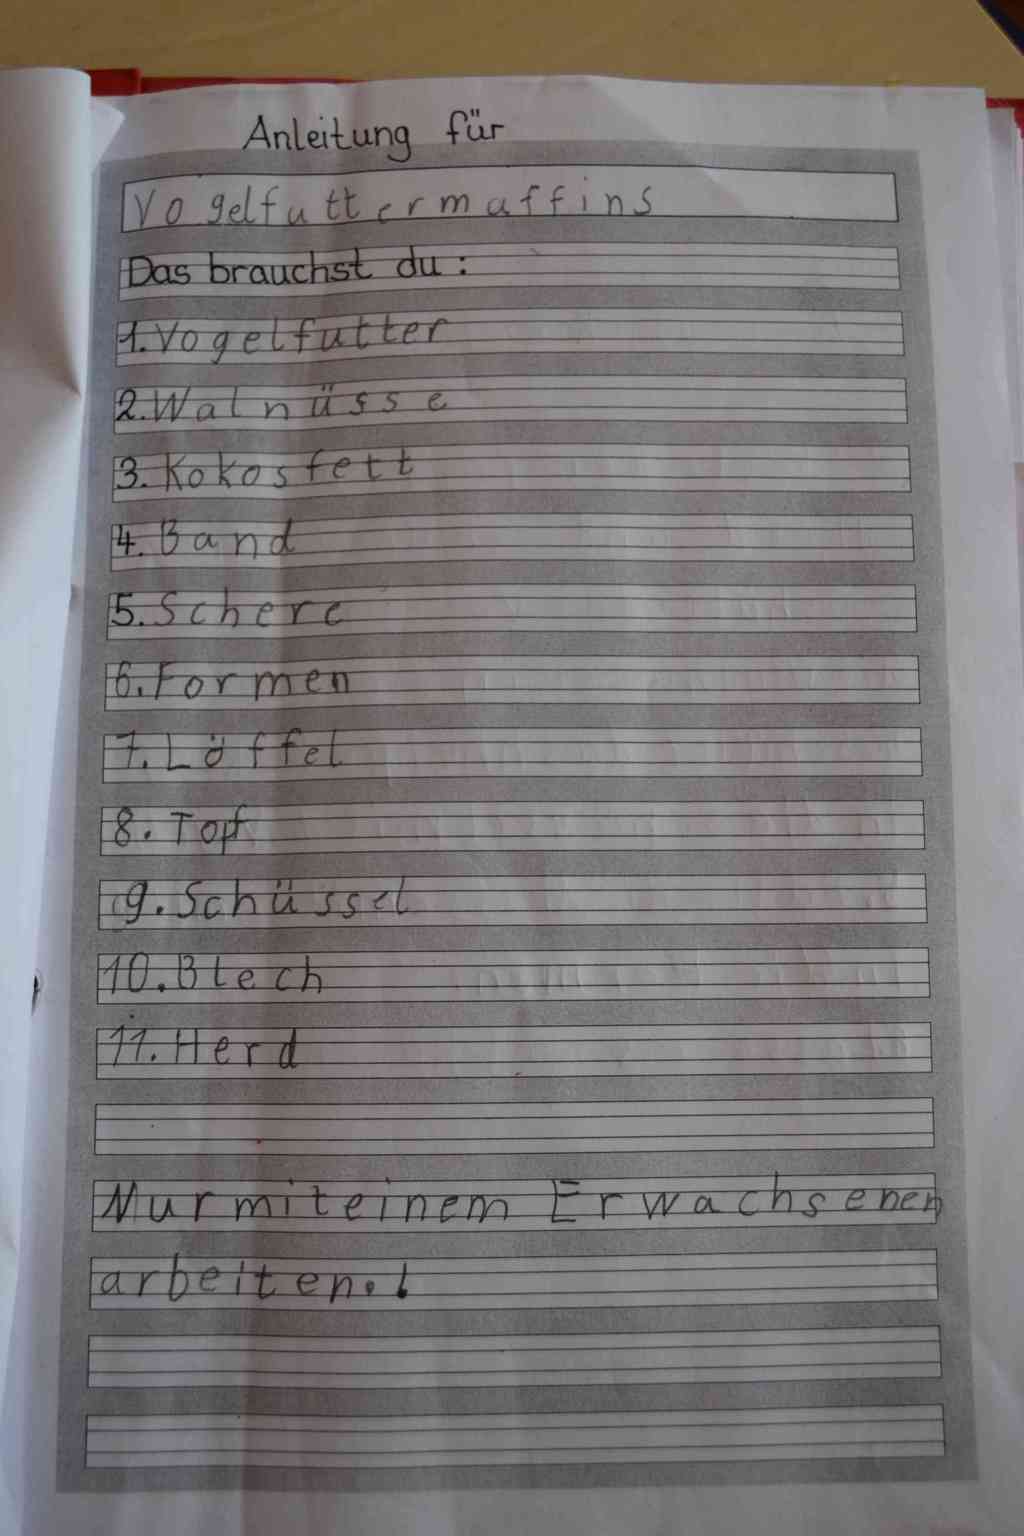 Anleitung für
Vogelfuttermaffins
Das brauchst du:
1. Vogelfutter
2. Walnüsse
3. Kokosfett
4. Band
5. Schere
6. Formen
7. Löffel
8. Topf
9. Schüssel
10. Blech
11. Herd
Nur mit einem Erwachsenen
arbeiten.!